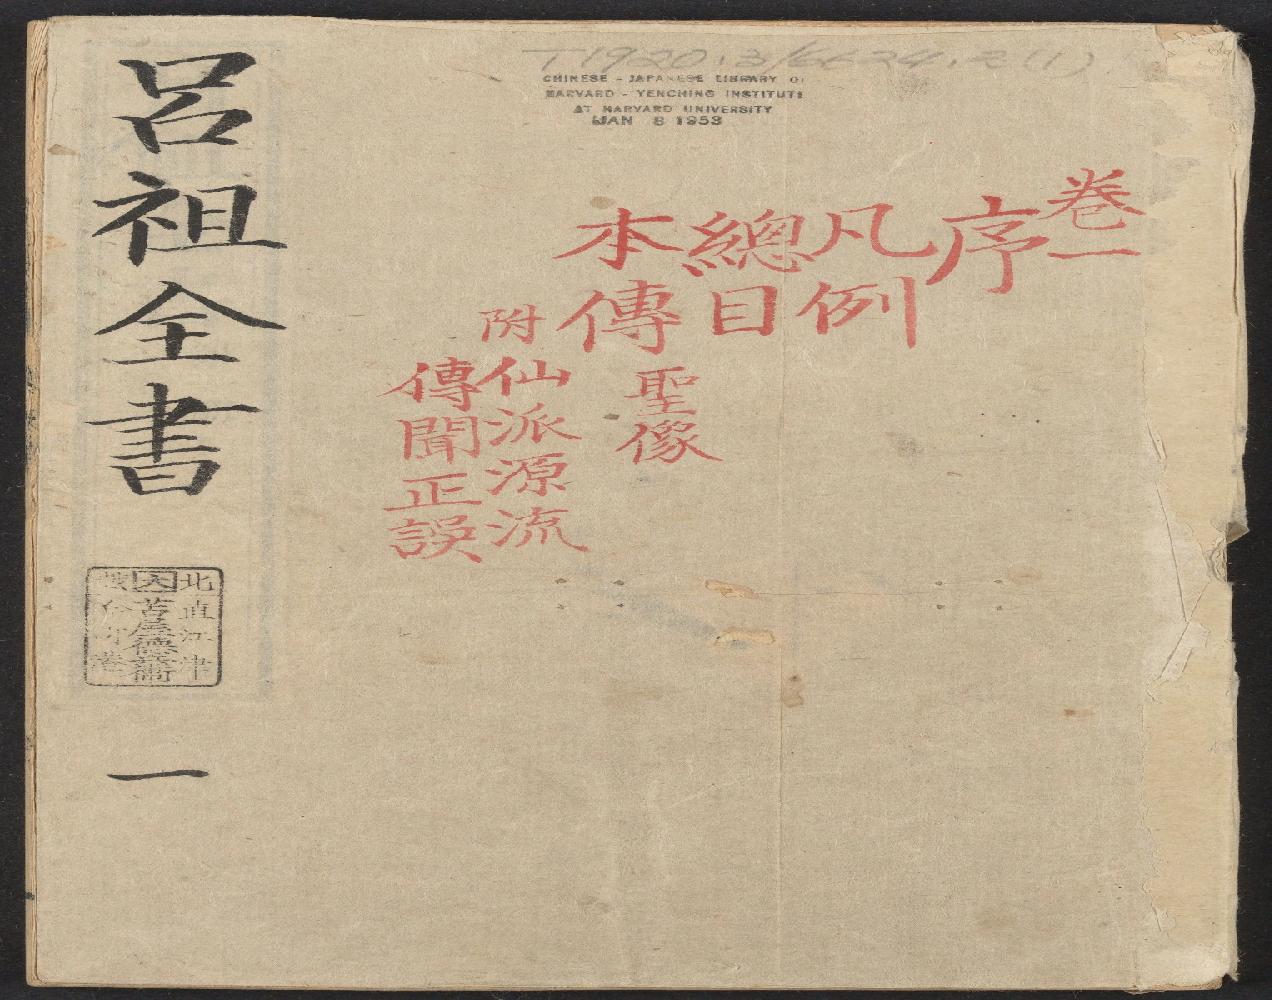 T1920.3/6624.2(1)
CHINESE - JAPANESE LIBRARY OF
HARVARD - YENCHING INSTITUTE
AT HARVARD UNIVERSITY
JAN 8 1953
卷一
序
凡例
總目
聖像
本傳
附仙派源流
傳聞正誤
呂祖全書
一
北直江津